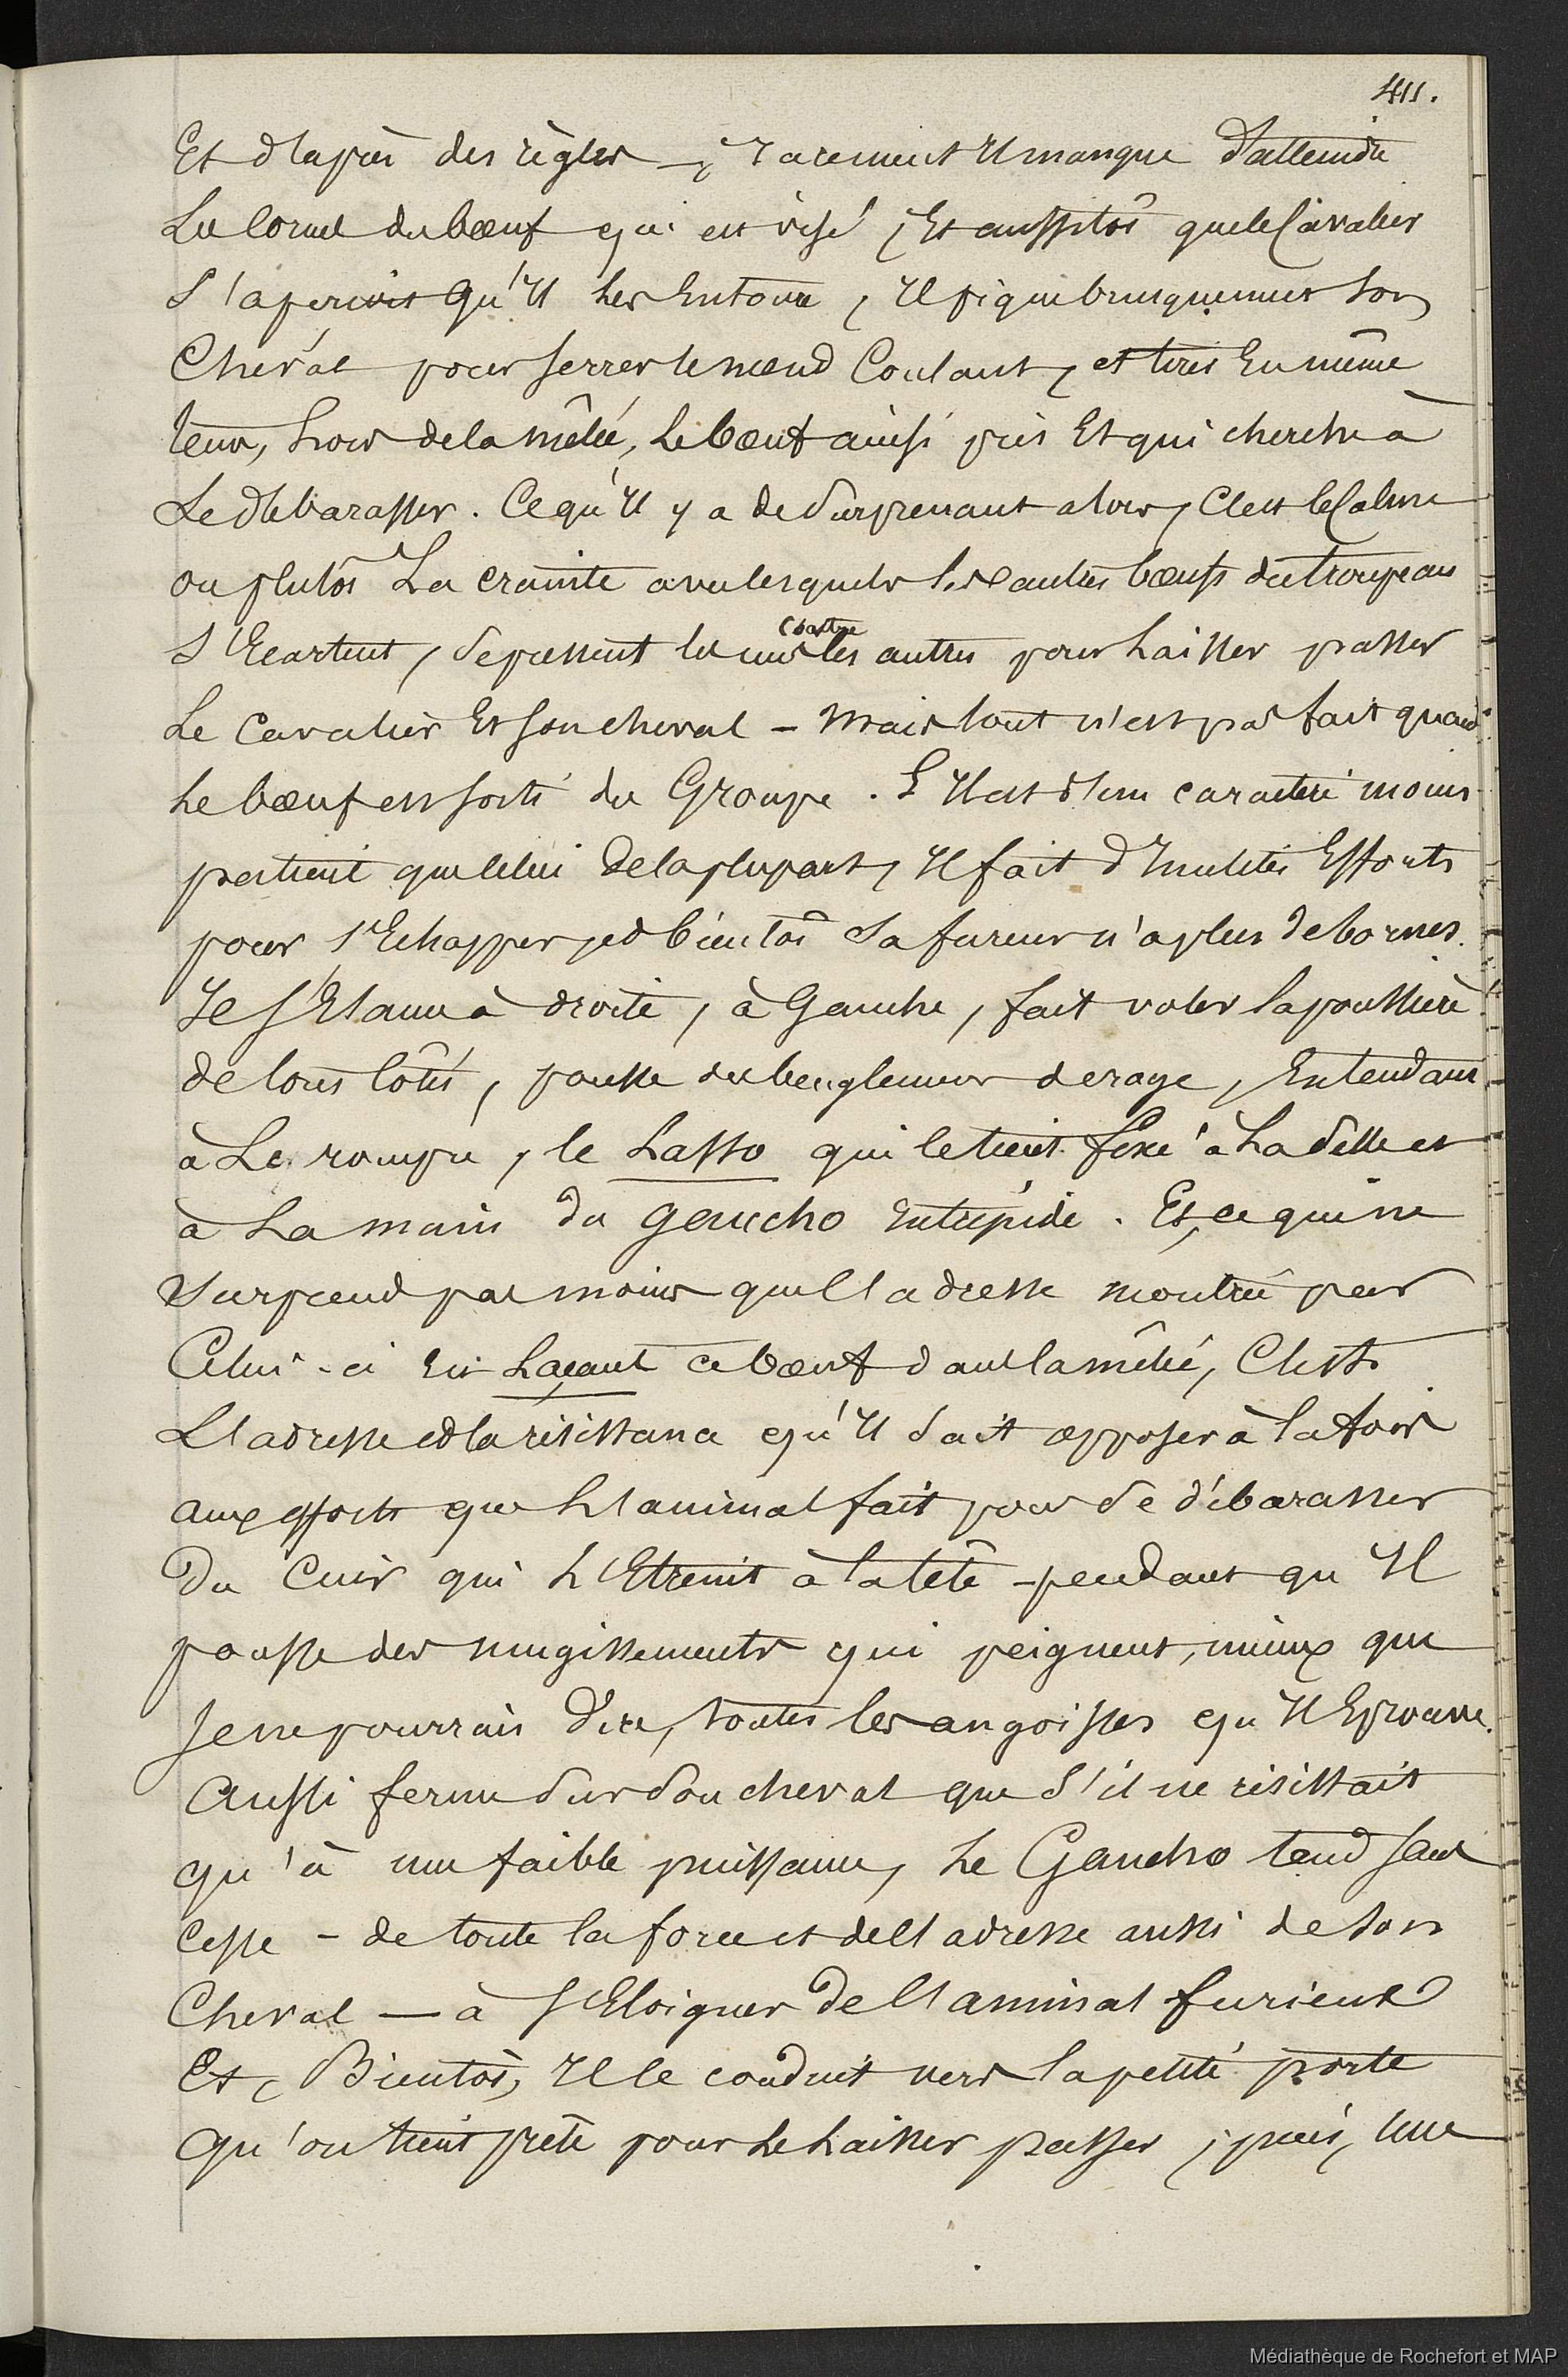 411.
Et d'après des règles —, rarement Il manque d'atteindre
Les Cornes du bœuf qui est visé, Et aussitôt que le Cavalier
S'aperçoit Qu'Il Les Entoure, Il pique brusquement Son
Cheval pour serrer le nœud Coulant, et tirer En même
tems, hors de la mêlée, Le bœuf ainsi pris Et qui cherche à
Se débarasser. Ce qu'Il y a de Surprenant alors, C'est le Calme
ou plutôt La crainte avec lesquels les autres bœufs du troupeau
S'Ecartent, Se pressent les uns contre les autres pour Laisser passer
Le Cavalier Et son cheval — Mais tout n'est pas fait quand
Le bœuf est sorti du Groupe. S'Il est d'un caractère moins
patient que Celui De la plupart, Il fait d'Inutiles Efforts
pour s'Echapper, et bientôt Sa fureur n'a plus de bornes.
Il s'Elance à droite, à Gauche, fait voler la poussière
de tous Côtés, pousse des beuglemens de rage, En tendant
à Le rompre, le Lasso qui le tient fixé à La Selle et
à La main du gaucho Intrépide. Et, ce qui ne
Surprend pas moins que l'adresse montrée par
Celui-ci En Laçant ce bœuf dans la mêlée, C'est
L'adresse et la résistance qu'Il Sait opposer à la fois
aux efforts que L'animal fait pour Se débarasser
Du Cuir qui L'Etreint à la tête — pendant qu'Il
pousse des mugissements qui peignent, mieux que
Je ne pourrais Dire, toutes les angoisses qu'Il Eprouve.
Aussi ferme Sur Son cheval que S'il ne résistait
qu'à une faible puissance, Le Gaucho tend sans
Cesse — de toute la force et de l'adresse aussi de Son
Cheval — à s'Eloigner De l'animal furieux
Et, Bientôt, Il le conduit vers la petite porte
Qu'on tient prête pour Le Laisser passer, puis, Une
Médiathèque de Rochefort et MAP